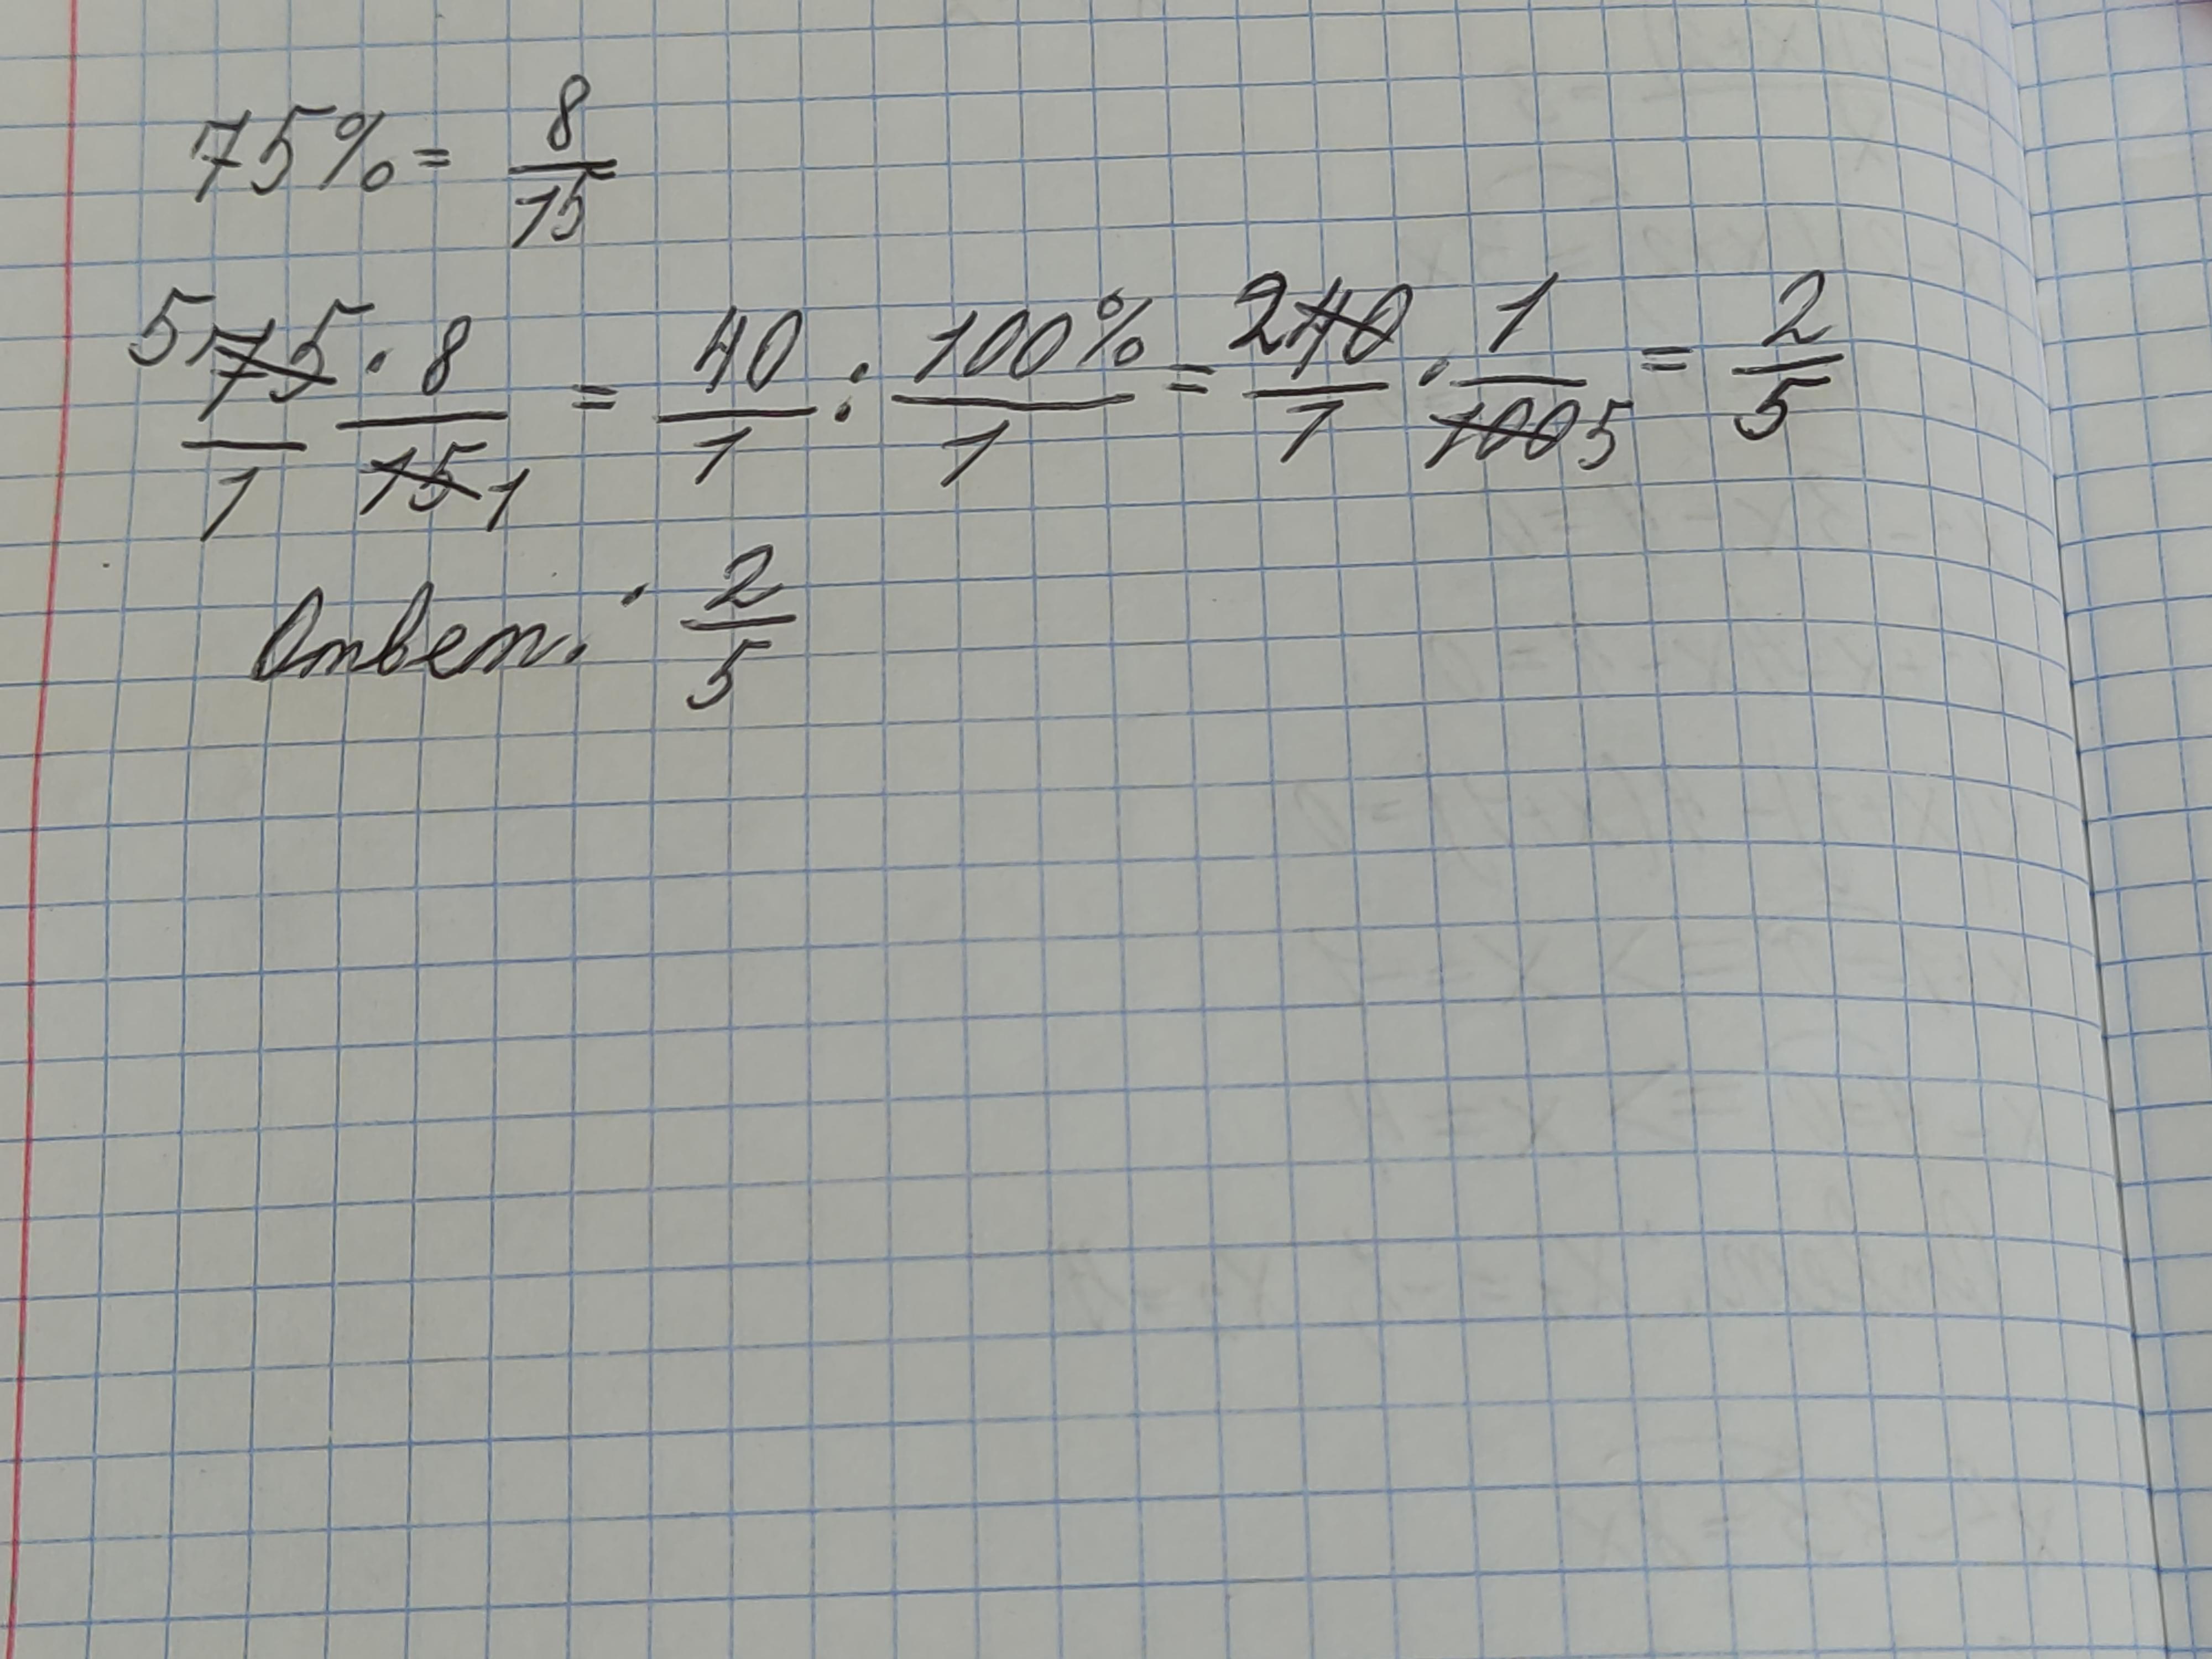 75% = 8/15
5 75/1 · 8/15 1 = 40/1 : 100%/1 = 2 40/1 · 1/100 5 = 2/5
Ответ: 2/5